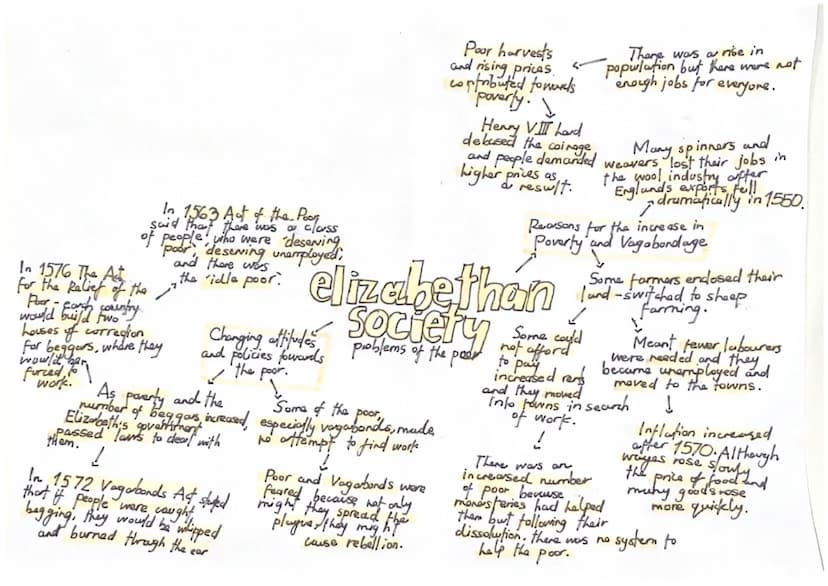 elizabethan
society
problems of the poor
Reasons for the increase in
Poverty and Vagabondage
Many spinners and
weavers lost their jobs in
the wool industry after
Englands exports fell
dramatically in 1550.
There was a rise in
population but there were not
enough jobs for everyone.
Poor harvests
and rising prices
contributed towards
poverty.
Henry VIII had
debased the coinage
and people demanded
higher prices as
a result.
Some farmers enclosed their
land - switched to sheep
farming.
Some could
not afford
to pay
increased rent
and they moved
into towns in search
of work.
There was an
increased number
of poor because
monasteries had helped
them but following their
dissolution, there was no system to
help the poor.
Meant fewer labourers
were needed and they
became unemployed and
moved to the towns.
Inflation increased
after 1570. Although
wages rose slowly
the price of food and
many goods rose
more quickly.
Changing attitudes
and policies towards
the poor.
Some of the poor,
especially vagabonds, made
no attempt to find work
Poor and Vagabonds were
feared because not only
might they spread the
plague, they might
cause rebellion.
As poverty and the
number of beggars increased,
Elizabeth's government
passed laws to deal with
them.
In 1572 Vagabonds Act stated
that if people were caught
begging, they would be whipped
and burned through the ear
In 1576 The Act
for the Relief of the
Poor - each country
would build two
houses of correction
for beggars, where they
would be
forced to
work.
In 1563 Act of the Poor
said that there was a class
of people, who were 'deserving
poor', deserving unemployed;
and there was
the 'idle poor'.